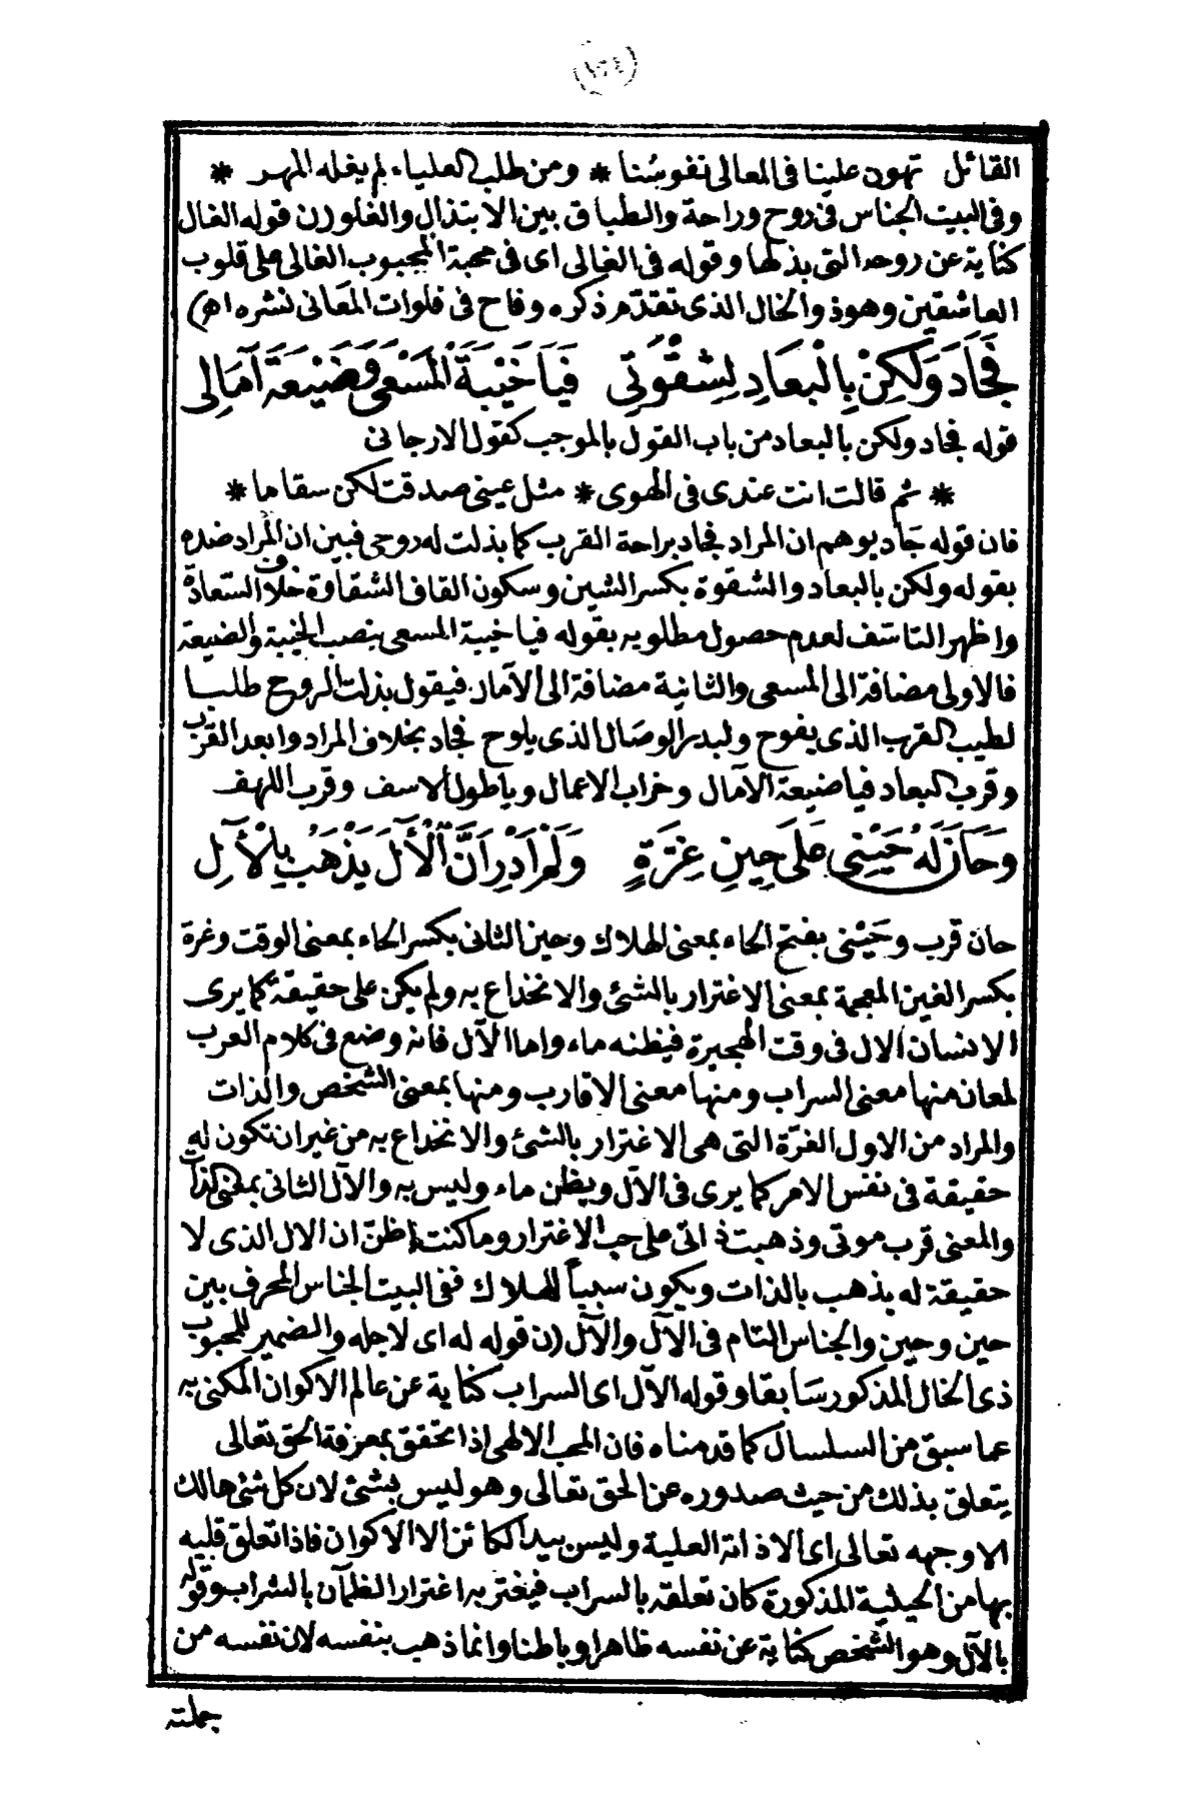 القائل تهون علينا فى المعالى نفوسُنا * ومن طلب العلياء لم يغله المهر *
وفى البيت الجناس فى روح وراحة والطباق بين الابتذال والغلو (ن قوله الغال
كناية عن روحه التى بذلها وقوله فى الغالى اى فى محبة المحبوب الغالى على قلوب
العاشقين وهو ذو الخال الذى تقدّم ذكره وفاح فى فلوات المعَانى نشره اه)
فَجَادَ وَلَكِنْ بِالْبعَادِ لِشِقْوَتِى فَيَا خَيْبَةَ الْمَسْعَى وَضَيْعَةَ آمَالِى
قوله فجاد ولكن بالبعاد من باب القول بالموجب كقول الارجانى
* ثم قالت انت عندى فى الهوى * مثل عينى صدقت لكن سقاما *
فان قوله جَاد يوهم ان المراد فجاد براحة القرب كما بذلت له روحى فبين ان المراد ضده
بقوله ولكن بالبعاد والشقوة بكسر الشين وسكون القاف الشقاوة خلاف السّعادة
واظهر التاسّف لعدم حصول مطلوبه بقوله فيا خيبة المسعى بنصب الخيبة والضيعة
فالاولى مضافة الى المسعى والثانية مضافة الى الآمال فيقول بذلت الروح طلبا
لطيب القرب الذى يفوح ولبدر الوصَال الذى يلوح فجاد بخلاف المراد وابعد القرب
وقرب البعاد فيا ضيعة الآمال وخراب الاعمال ويا طول الاسف وقرب اللهف
وَحَانَ لَهُ حَيْنِى عَلَى حِينِ غِرَّةٍ وَلَمْ اَدْرِ اَنَّ الْآلَ يَذْهَبُ بِالْآلِ
حان قرب وحَيْنى بفتح الحاء بمعنى الهلاك وحين الثانى بكسر الحاء بمعنى الوقت وغرة
بكسر الغين المعجمة بمعنى الاغترار بالشئ والانخداع به ولم يكن على حقيقة كما يرى
الانسان الال فى وقت الهجيرة فيظنه ماء واما الآل فانه وضع فى كلام العرب
لمعان منها معنى السراب ومنها معنى الاقارب ومنها بمعنى الشخص والذات
والمراد من الاول الغرّة التى هى الاغترار بالشئ والانخداع به من غير ان تكون له
حقيقة فى نفس الامر كما يرى فى الآل ويظن ماء وليس به والآل الثانى بمعنى الذات
والمعنى قرب موتى وذهبت ذاتى على حب الاغترار وما كنت اظنّ ان الال الذى لا
حقيقة له يذهب بالذات ويكون سبباً للهلاك ففى البيت الجناس المحرف بين
حين وحين والجناس التام فى الآل والآل (ن قوله له اى لاجله والضمير للمحبوب
ذى الخال المذكور سَابقا وقوله الآل اى السراب كناية عن عالم الاكوان المكنى به
عما سبق من السلسال كما قدمناه فان المحب الالهى اذا تحقق بمعرفة الحق تعالى
يتعلق بذلك من حيث صدوره عن الحق تعالى وهو ليس بشئ لان كل شئ هالك
الا وجهه تعالى اى الا ذاته العلية وليس بيد الكائن الا الاكوان فاذا تعلق قلبه
بها من الحيثية المذكورة كان تعلقه بالسراب فيغتر به اغترار الظمآن بالسراب وقوله
بالآل وهو الشخص كناية عن نفسه ظاهرا وباطنا وانما ذهب بنفسه لان نفسه من
جملته